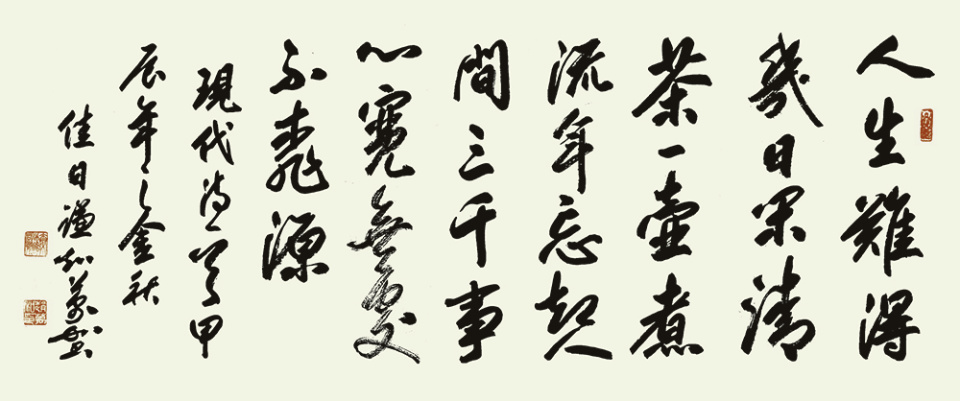 人生難得
幾日閑清
茶一壺煮
流年忘却人
間三千事
心寬無處
不桃源
現代詩一首甲
辰年之金秋
佳日謙和萬賀